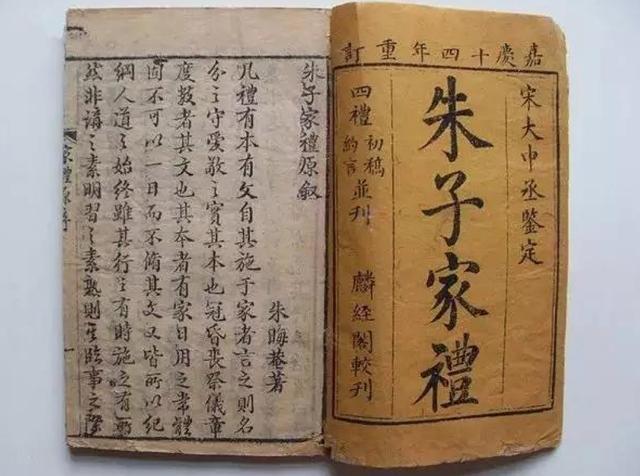 嘉慶十四年重訂
宋大中丞鑒定
朱子家禮
四禮初稿約言並刊 麟經閣較刊
朱子家禮原叙
朱晦菴著
凡禮有本有文自其施于家者言之則名
分之守愛敬之實其本也冠昏喪祭儀章
度數者其文也其本者有家日用之常體
固不可以一日而不脩其文又皆所以紀
綱人道之始終雖其行之有時施之有所
然非講之素明習之素熟則其臨事之際
家禮原序
一